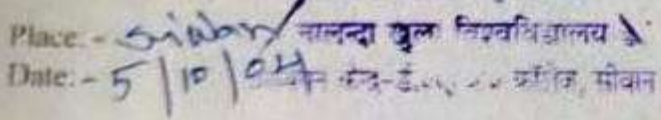 Place:- Siwan नालन्दा खुला विश्वविद्यालय
Date:- 5/10/04 केन्द्र-डी. कॉलेज, सीवान